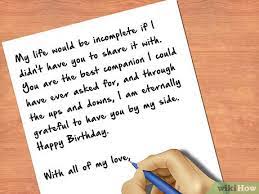 My life would be incomplete if I
didn't have you to share it with.
You are the best companion I could
have ever asked for, and through
the ups and downs, I am eternally
grateful to have you by my side.
Happy Birthday.
With all of my love,
wikiHow